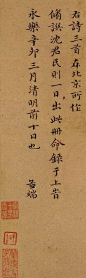 右詩三首在北京所作
脩譔沈君民則一日出此冊命錄于上昔
永樂辛卯三月清明前十日也